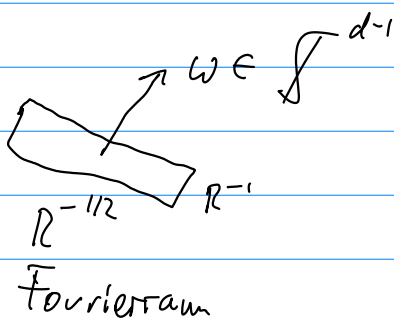 ω ∈ S^{d-1}
R^{-1}
R^{-1/2}
Fourierraum